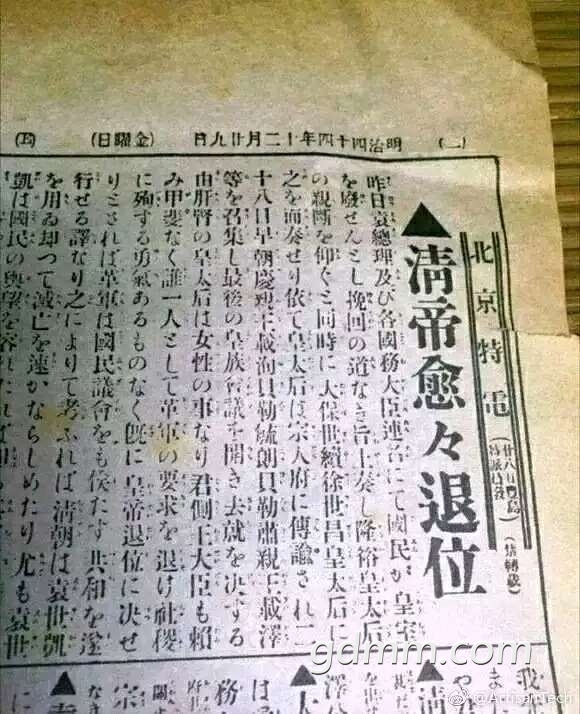 (二)
明治四十四年十二月廿九日
(金曜日)
北京特電
(廿八日豊島特派員発)
(禁轉載)
▲清帝愈々退位
昨日袁總理及び各國務大臣連名にて國民が皇室
を廢せんとし挽回の道なき旨上奏し隆裕皇太后
の親斷を仰ぐと同時に大保世續徐世昌皇太后に
之を面奏せり依て皇太后は宗人府に傳諭され二
十八日早朝慶親王載洵貝勒毓朗貝勒肅親王載澤
等を召集し最後の皇族會議を開き去就を決する
由肝腎の皇太后は女性の事なり君側王大臣も賴
み甲斐なく誰一人として革軍の要求を退け社稷
に殉する勇氣あるものなく既に皇帝退位に決せ
りとされば革軍は國民議會をも俟たす共和を遂
行せる譯なり之によりて考ふれば清朝は袁世凱
を用ゐ却つて滅亡を速かならしめたり尤も袁世
凱は國民の輿望を
gdmm.com
@ArtisanTech